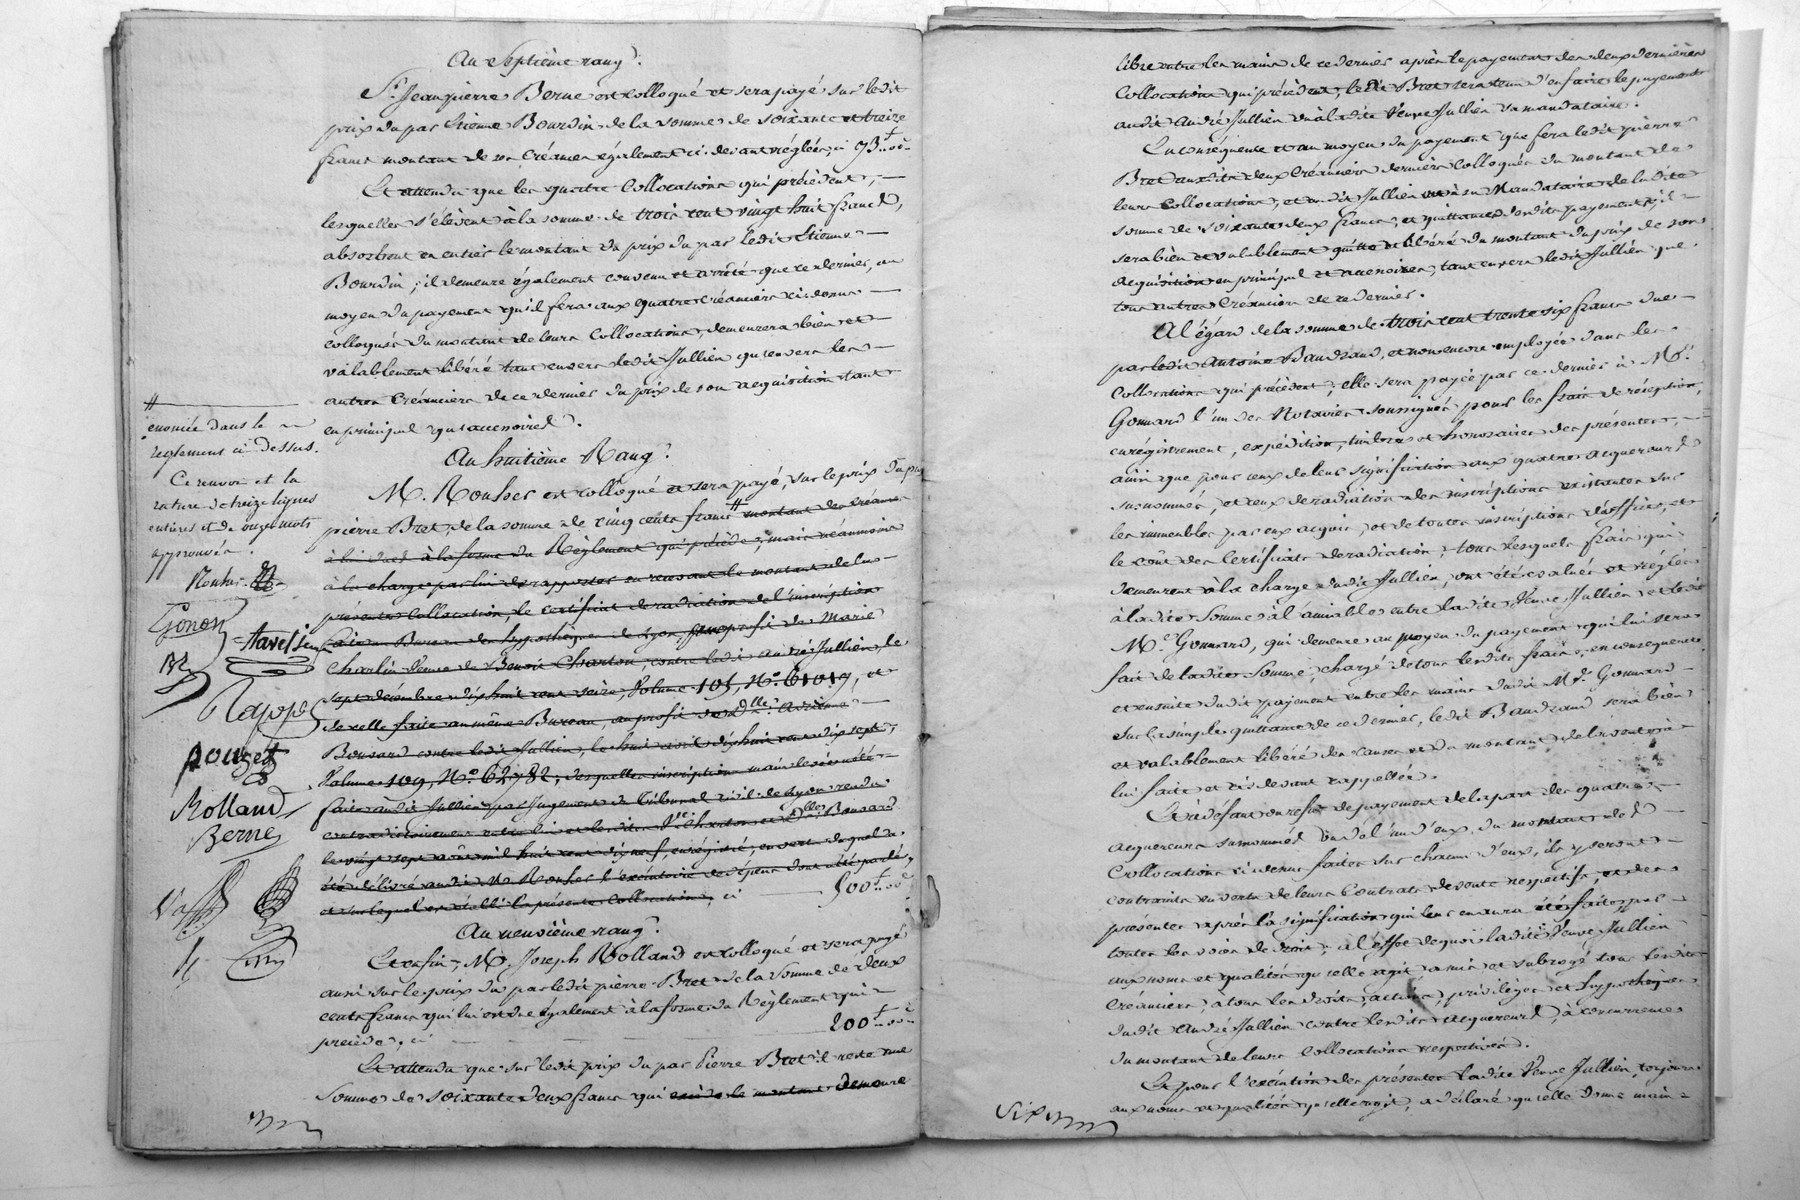 Au Septième rang.
Sr. Jean pierre Berne est colloqué et sera payé sur ledit
prix du par Etienne Bourdin de la somme de soixante et treize
francs montant de son Créances également ci-devant réglées, ci 73 f. 00 c
Et attendu que les quatre Collocations qui précèdent, —
lesquelles s'élèvent à la somme de trois cent vingt huit francs,
absorbent en entier le montant du prix du par ledit Etienne —
Bourdin, il demeure également convenu et arrêté que ce dernier, au
moyen du payement qu'il fera aux quatre Créanciers ci dessus —
colloqués du montant de leurs Collocations, demeurera bien et —
valablement libéré tant envers ledit Jullien qu'envers les —
autres Créanciers de ce dernier du prix de son acquisition tant
en principal qu'accessoires.
Au huitième Rang.
M. Rouher est colloqué et sera payé, sur le prix du par
pierre Bret, de la somme de cinq cents francs # montant des créances
à lui dues à la forme du Règlement qui précède, mais néanmoins
à la charge par lui de rapporter en recevant le montant de la
présente Collocation, le certificat de radiation de l'inscription
faite au Bureau des hypothèques de Lyon, au profit de Marie
Charlin Veuve de Benoit Charton, contre ledit André Jullien, le
sept décembre dix huit cent seize, Volume 105, No. 61019, et
de celle faite au même Bureau, au profit de dlle.
Bonnard contre ledit Jullien, le huit avril dix huit cent dix sept,
Volume 109, No. 62782, desquelles inscriptions main levée a été
faite audit Jullien par Jugement du Tribunal civil de Lyon rendu
contradictoirement entre lui et lesdites Ve. Charton et Dlle Bonnard
le vingt sept août mil huit cent dix neuf, enrégistré, en vertu duquel a
été délivré audit M. Rouher l'exécutoire de dépens dont a été parlé,
et sur lequel est établi la présente Collocation, ci — 500 f. 00 c
Au neuvième rang.
Et enfin, M. Joseph Rolland est colloqué et sera payé
aussi sur le prix du par ledit pierre Bret de la Somme de deux
cents francs qui lui est due également à la forme du Règlement qui —
précède, ci — 200 f. 00 c
Et attendu que sur ledit prix du par Pierre Bret il reste une
Somme de soixante deux francs qui demeure
#
énoncée dans le
règlement ci dessus.
Ce renvoi et la
rature de treize lignes
entières et de onze mots
approuvés.
Rouher
Gonon
pouzet
Rolland
Berne
libre entre les mains de ce dernier après le payement des deux dernières
Collocations qui précèdent, ledit Bret sera tenu d'en faire le payement
audit André Jullien ou à ladite Veuve Jullien sa mandataire.
En conséquence et au moyen du payement que fera ledit pierre
Bret auxdits deux Créanciers derniers Colloqués du montant de
leurs Collocations, et audit Jullien ou à sa Mandataire de ladite
somme de soixante deux francs, et quittances desdits payements, il —
sera bien et valablement quitte et libéré du montant du prix de son
acquisition en principal et accessoires, tant envers ledit Jullien que
tous autres Créanciers de ce dernier.
A l'égard de la somme de trois cent trente six francs due —
par ledit Antoine Baudrand, et non encore employée dans les
Collocations qui précèdent, elle sera payée par ce dernier à Me.
Gonnard l'un des Notaires soussignés pour les frais de réception,
enrégistrement, expédition, timbres et honoraires des présentes, —
ainsi que pour ceux de leur signification aux quatre acquereurs
susnommés, et ceux de radiation des inscriptions existantes sur
les immeubles par eux acquis, et de toutes inscriptions d'office, et
le coût des Certificats de radiation, tous lesquels frais qui
demeurent à la charge dudit Jullien, ont été évalués et réglés
à ladite Somme à l'amiable entre ladite Veuve Jullien et ledit
Me. Gonnard, qui demeure au moyen du payement qui lui sera
fait de ladite Somme, chargé de tous lesdits frais, en conséquence
et ensuite dudit payement entre les mains dudit Me. Gonnard —
sur la simple quittance de ce dernier, ledit Baudrand sera bien
et valablement libéré des causes et du montant de la vente à
lui faite et ci devant rappellée.
Et à défaut ou refus de payement de la part des quatre —
acquereurs susnommés ou de l'un d'eux, du montant des —
Collocations ci dessus faites sur chacun d'eux, ils y seront —
contraints en vertu de leurs Contrats de vente respectifs, et des
présentes après la signification qui leur en aura été faite, par —
toutes les voies de droit, à l'effet de quoi ladite Veuve Jullien
aux noms et qualités qu'elle agit a mis et subrogé tous lesdits
Créanciers, à tous les droits, actions, privilèges et hypothèques
dudit André Jullien contre lesdits acquereurs, à concurrence
du montant de leurs Collocations respectives.
Et pour l'exécution des présentes ladite Veuve Jullien, toujours
aux noms et qualités qu'elle agit, a déclaré qu'elle donne main =
Six